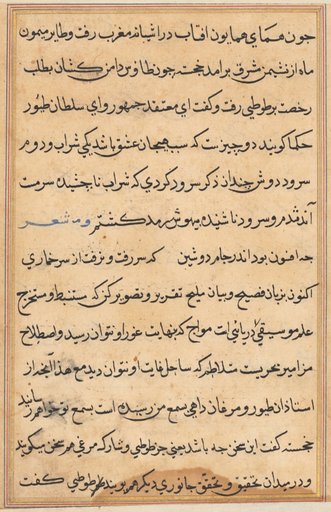 جون همای همایون افتاب در اشیانه مغرب رفت و طایر میمون
ماه از نشیمن شرق برامد خجسته جون طاوس دامن کشان بطلب
رخصت بر طوطی رفت و کفت ای معتقد جمهور و ای سلطان طیور
حکما کویند دو چیزست که سبب هیجان عشق باشد یکی شراب و دوم
سرود دوش چندان ذکر سرود کردی که شراب ناچشیده سرمست
شدم و سرود ناشنیده مدهوش کشتم شعر
جه افسون بود اندر جام دوشین که سر رفت و نرفت از سر خماری
اکنون بزبان فصیح و بیان ملیح تقریر و تصویر کن که مستنبط و مستخرج
علم موسیقی که دریائی است مواج که بنهایت غور او نتوان رسید و اصطلاح
مزامیر بحریست متلاطم که ساحل غایت او نتوان دید مع هذا آنچه از
استاذان طیور و مرغان داهی بسمع من رسیده است بسمع تو خواهم رسانید
خجسته کفت این سخن جه باشد یعنی جز طوطی و شارک مرغی هم سخن میکوید
و در میدان تحقیق و تحقق جانوری دیکر هم پوید طوطی کفت